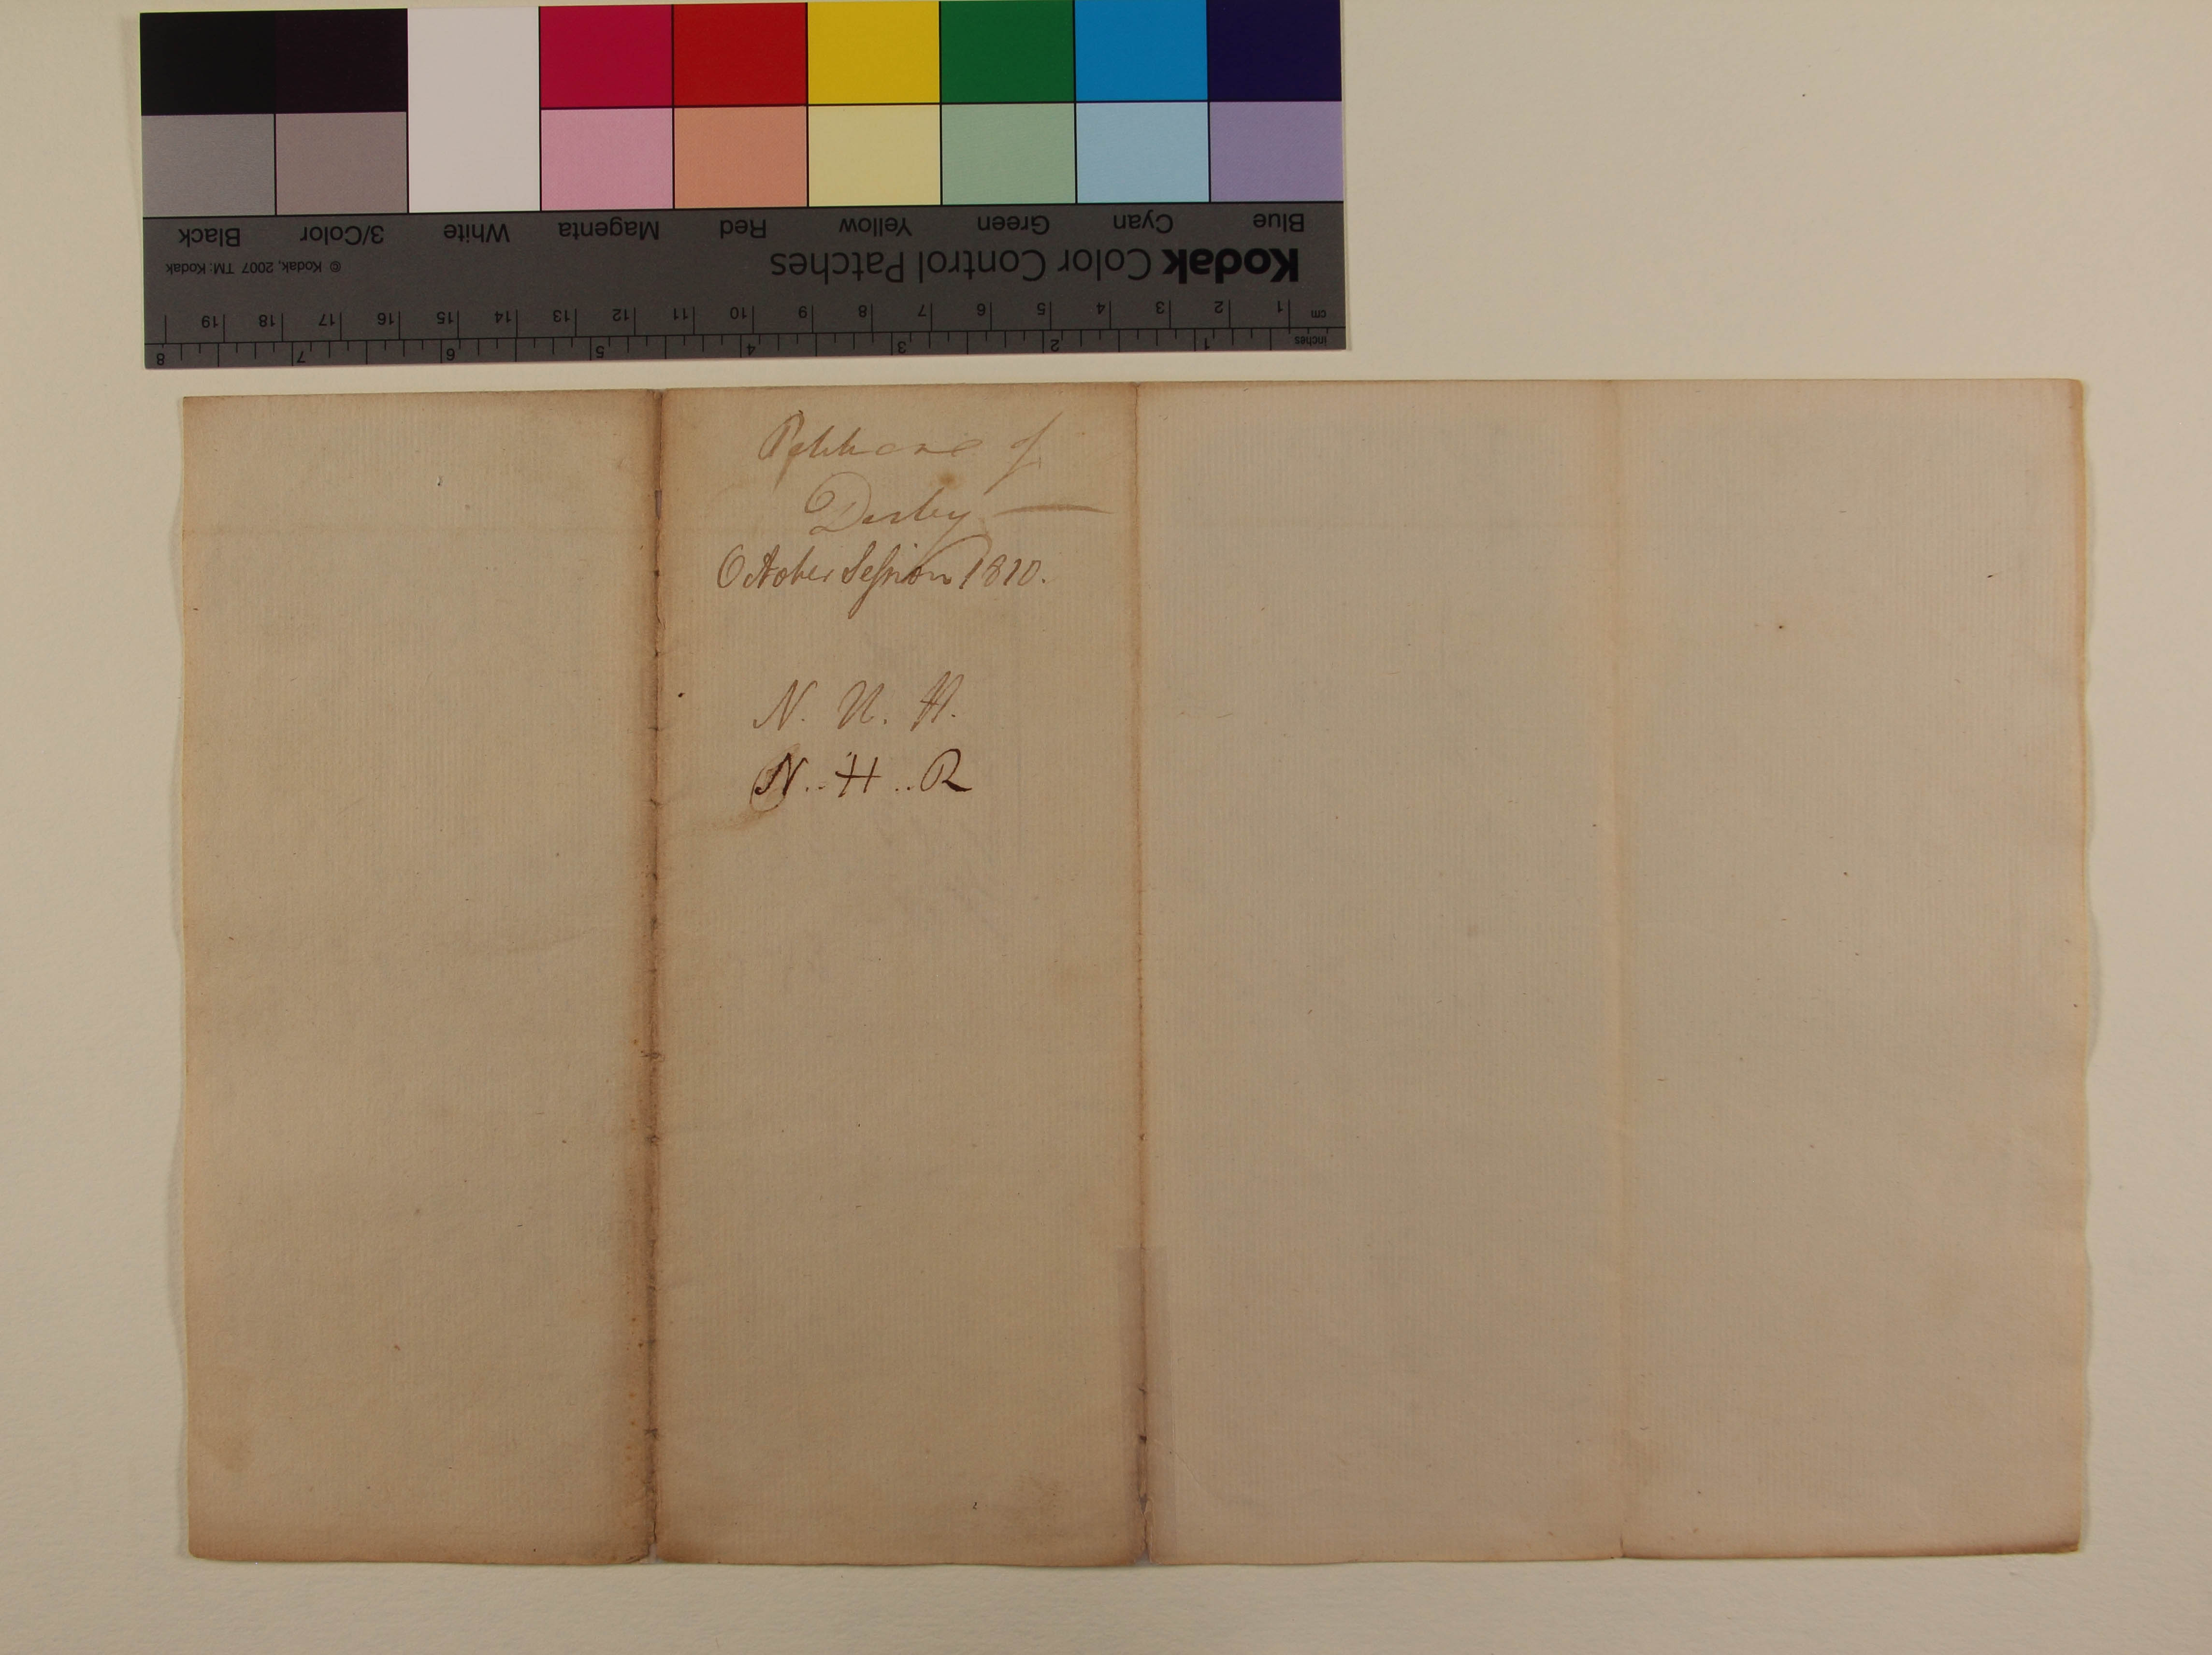 Black 3/Color White Magenta Red Yellow Green Cyan Blue
Kodak Color Control Patches
© Kodak, 2007 TM: Kodak
cm 1 2 3 4 5 6 7 8 9 10 11 12 13 14 15 16 17 18 19
inches 1 2 3 4 5 6 7 8
of
Derby
October Session 1810.
N. H.
N..H..R